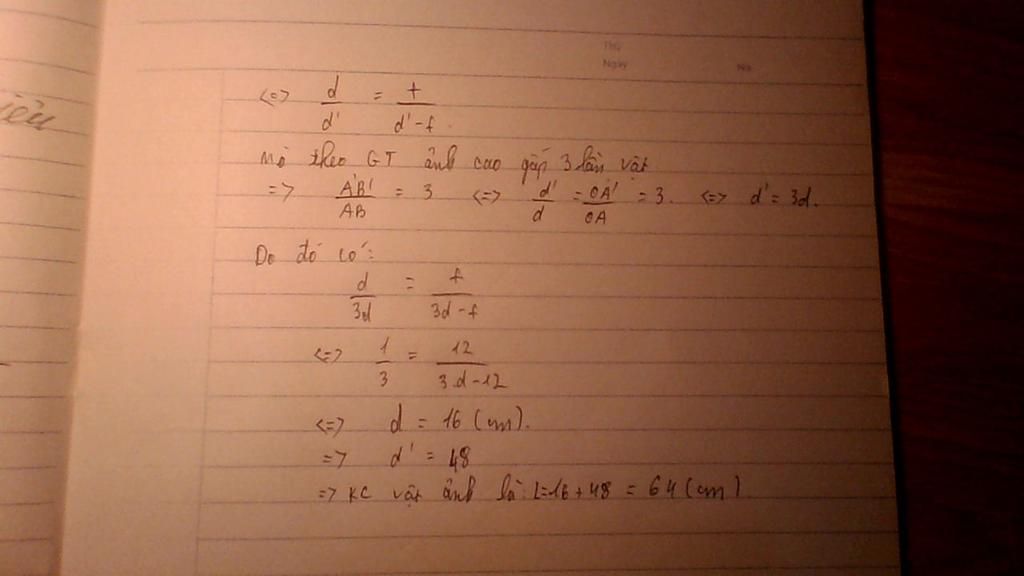 Thứ
Ngày No.
iều
<=> d/d' = f/d'-f.
Mà theo GT ảnh cao gấp 3 lần vật
=> A'B'/AB = 3 <=> d'/d = OA'/OA = 3. <=> d' = 3d.
Do đó có:
d/3d = f/3d-f
<=> 1/3 = 12/3.d-12
<=> d = 16 (cm).
=> d' = 48
=> KC vật ảnh là: L=16+48 = 64 (cm).